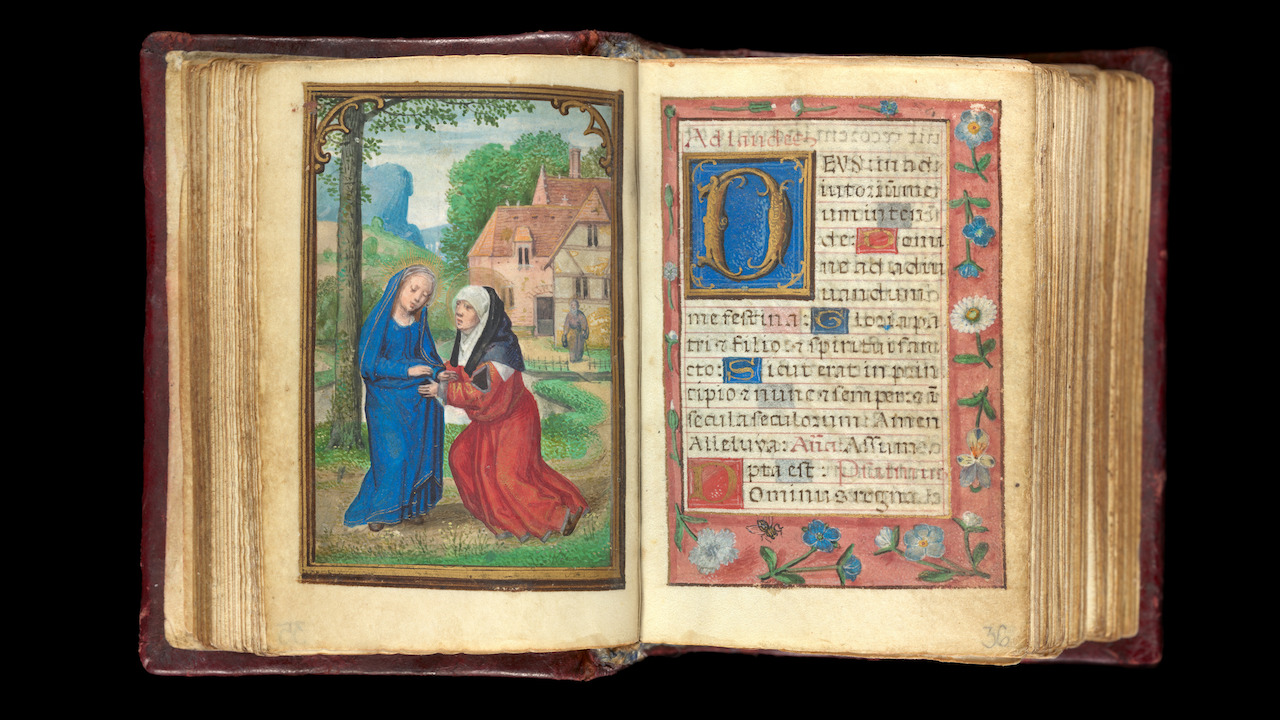 Ad laudes
DEVS in adi
utoriū me
um inten
de: Domi
ne ad adiu
uandum
me festina: Gloria pa
tri ⁊ filio: ⁊ spiritui san
cto: Sicut erat in prin
cipio ⁊ nunc ⁊ semper: ⁊ ī
secula seculorum: Amen
Alleluya: Aña: Assum
pta est: Psalmus
Dominus regna
36